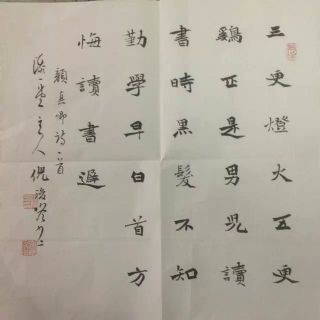 三更燈火五更
鷄正是男児讀
書時黑髮不知
勤學早白首方
悔讀書遲
顏真卿詩一首
堂主人倪